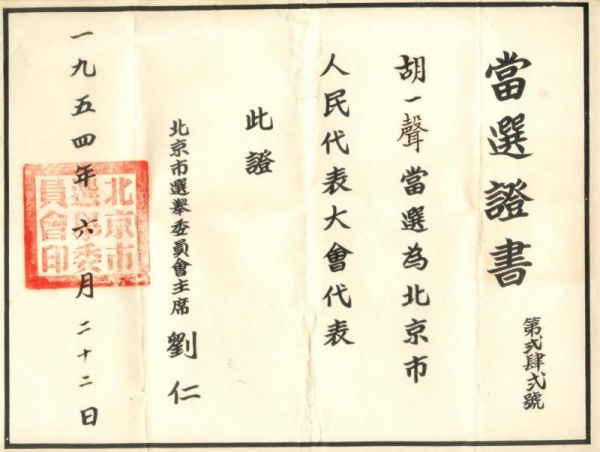 當選證書
第弍肆弍號
胡一聲當選為北京市
人民代表大會代表
此證
北京市選舉委員會主席 劉仁
一九五四年六月二十二日
北京市
選舉委
員會印